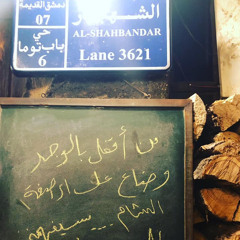 دمشق القديمة
07
حي
باب توما
6
AL-SHAHBANDAR
Lane 3621
من أثقل بالوجد
وضاع على أرصفة
الشام ....